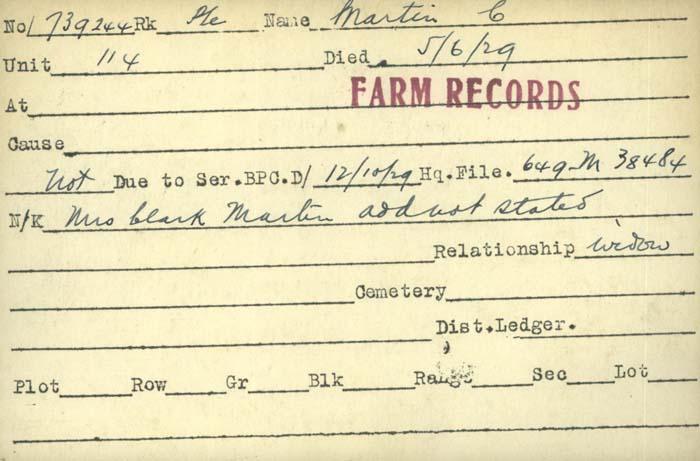 No 739244 Rk Pte Name Martin C
Unit 114 Died 5/6/29
At FARM RECORDS
Cause
Not Due to Ser. BPC.D/ 12/10/29 Hq.File. 649-M 38484
N/K Mrs Clark Martin add not stated
Relationship widow
Cemetery
Dist.Ledger.
Plot Row Gr Blk Range Sec Lot